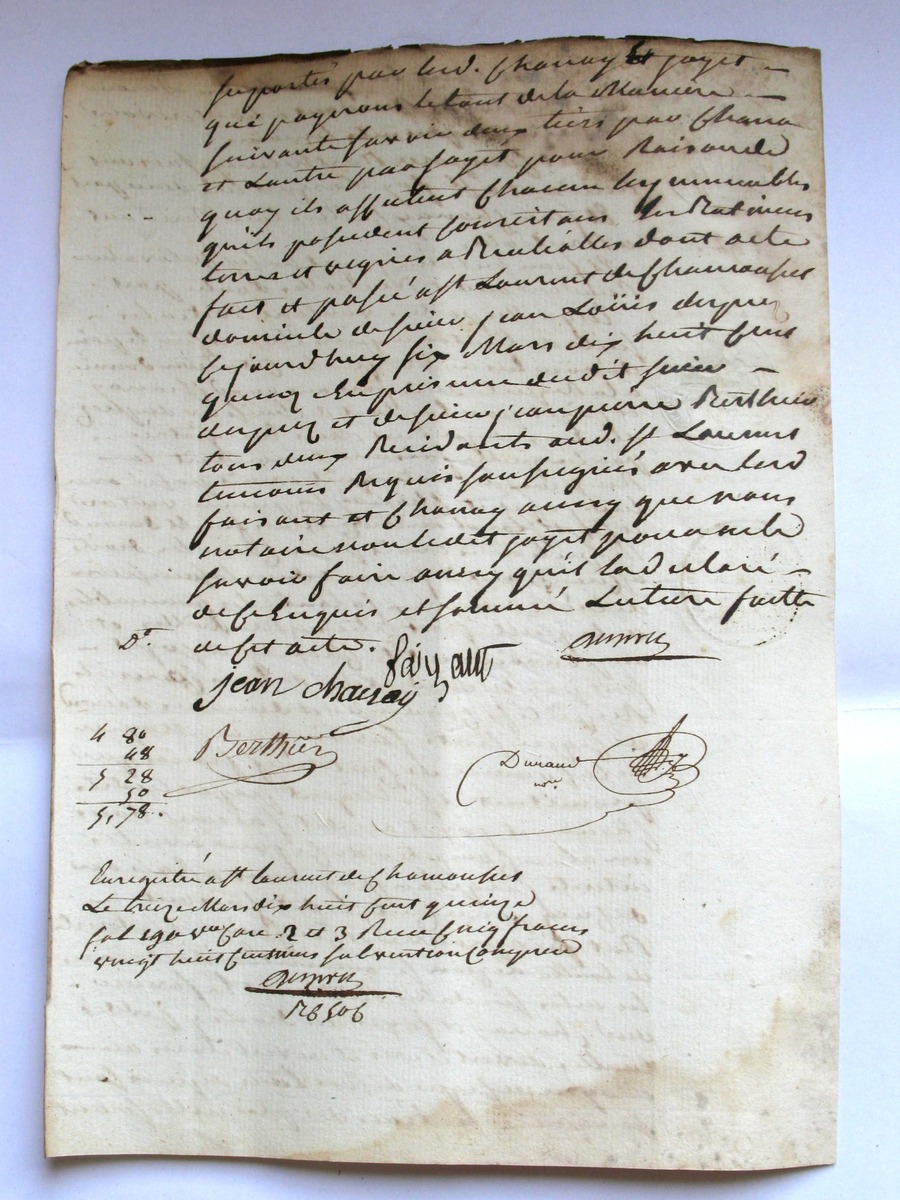 suportés par lesd. Chanay et jayet
qui payerons le tout de la Maniere
suivante savoir deux tiers par Chana
et Lautre par jayet pour Raison de
quoy ils affectent Chacun les immeubles
quils posedent Concistans En Batimens
terres et vignes a dont acte
fait et passé a St Laurent de Chamousset
domicile de sieur jean Loüis dupuy
Cejourdhuy six Mars dix huit Cent
quinze En presence dudit sieur
dupuy et de sieur jean pierre Berthier
tous deux Residants aud. St Laurent
temoins Requis soussignés avec led
faisant et Chanay aussy que nous
notaire non ledit jayet pour ne le
savoir faire aussy qu'il la declaré
de Ce Enquis et sommé Lecture faitte
de Cet acte.
Dt
faizant
jean chanay
dupuy
Berthier
Durand
nore.
4 80
48
5 28
50
5,78.
Enregistré a St laurent de Chamousset
Le treize Mars dix huit Cent quinze
fol 190 vo Case 2 et 3 Recu Cinq francs
vingt huit Centimes subvention Comprise
dupuy
R6506